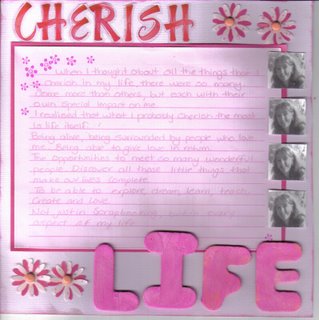 CHERISH
When I thought about all the things that I
cherish in my life, there were so many.
Some more than others, but each with their
own special impact on me.
I realised that what I probably cherish the most
is life itself.
Being alive, being surrounded by people who love
me. Being able to give love in return.
The opportunities to meet so many wonderful
people. Discover all those little things that
make our lives complete.
To be able to explore, dream, learn, teach
create and love.
Not just in Scrapbooking, but in every
aspect of my life
LIFE